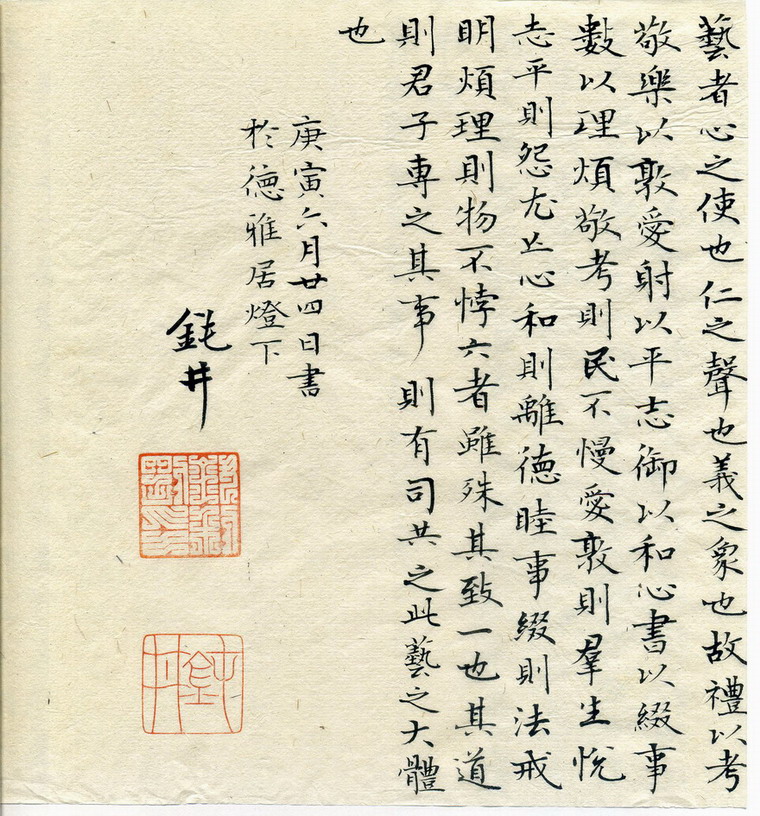 藝者心之使也仁之聲也義之象也故禮以考
敬樂以敦愛射以平志御以和心書以綴事
數以理煩敬考則民不慢愛敦則羣生悅
志平則怨尤亡心和則離德睦事綴則法戒
明煩理則物不悖六者雖殊其致一也其道
則君子專之其事則有司共之此藝之大體
也
庚寅六月廿四日書
於德雅居燈下
鈍井
鈍井